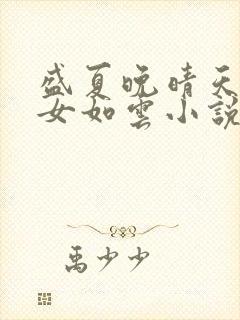 盛夏晚晴天
女如雲小說
禹少少